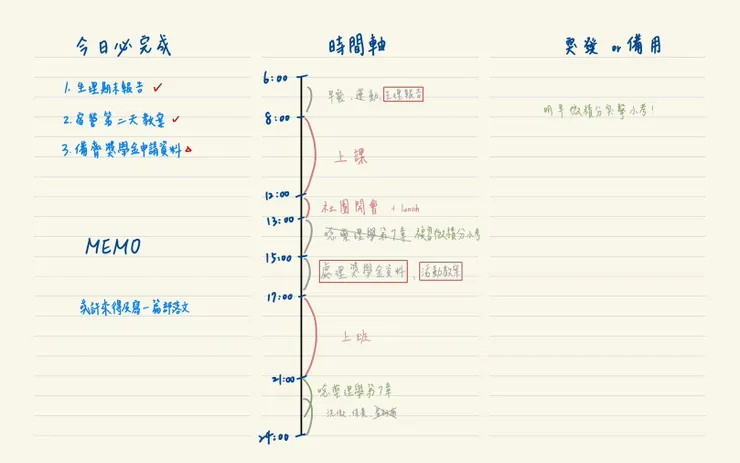 今日必完成
1. 生理期末報告 ✓
2. 宿營第二天教案 ✓
3. 備齊獎學金申請資料 △
MEMO
或許來得及寫一篇部落文
時間軸
6:00
早餐、運動、生理報告
8:00
上課
12:00
社團開會 + lunch
13:00
唸整理學第7章 複習微積分小考
15:00
處理獎學金資料、活動教案
17:00
上班
21:00
唸整理學第7章
洗澡、保養
24:00
突發 or 備用
明早微積分突擊小考！